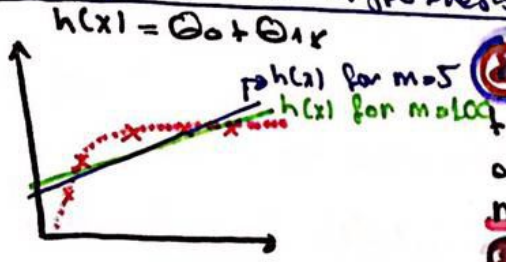 h(x) = Θ₀ + Θ₁x
h(x) for m=5
h(x) for m=100